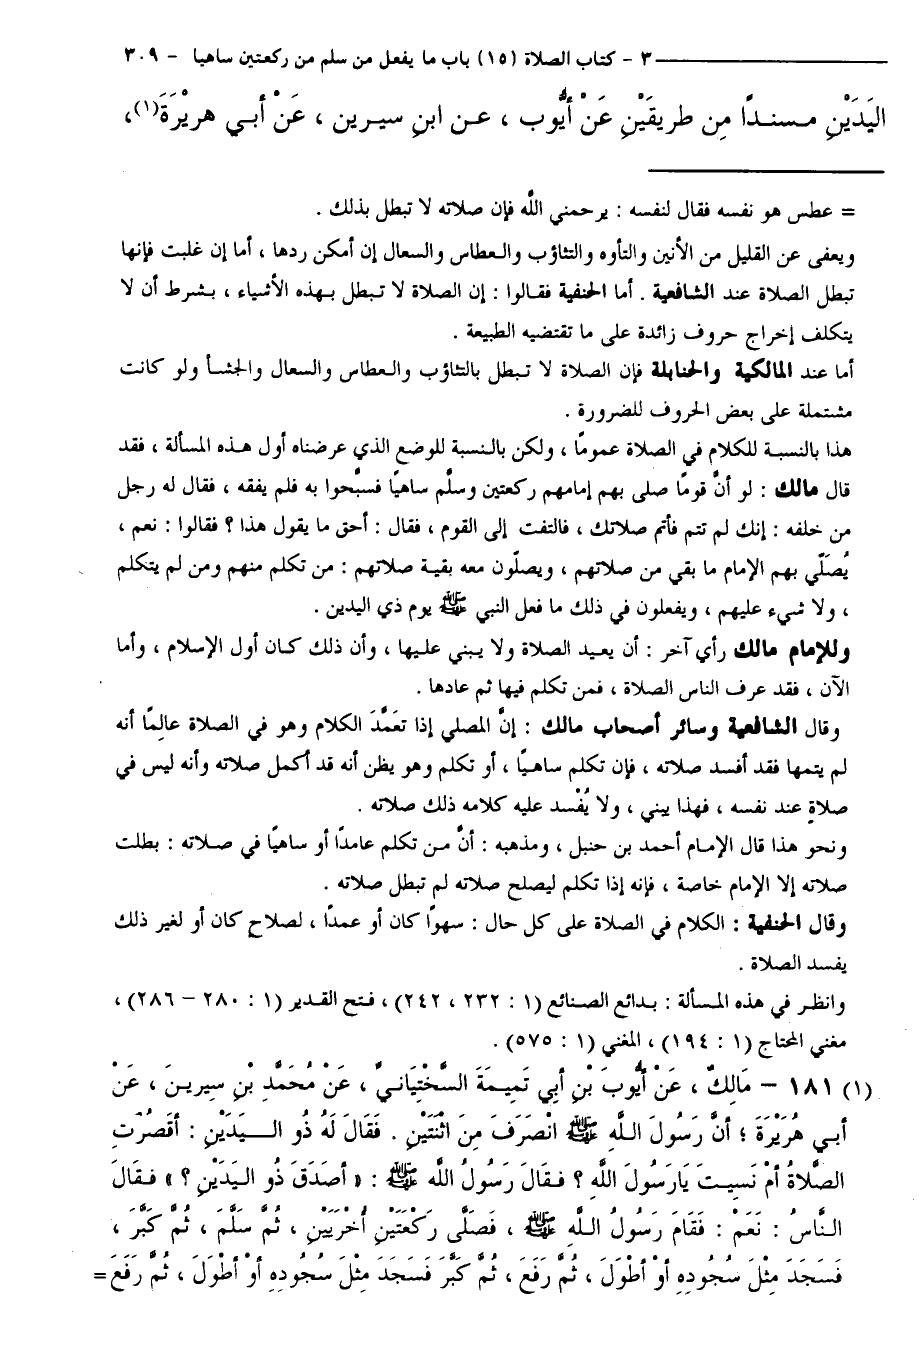 ٣ - كتاب الصلاة (١٥) باب ما يفعل من سلم من ركعتين ساهيا - ٣٠٩
اليَدَيْنِ مسندًا مِن طريقَيْنِ عَنْ أَيُّوب ، عن ابنِ سيرين ، عَنْ أَبي هريْرَةَ(١)،
= عطس هو نفسه فقال لنفسه : يرحمني اللَّه فإن صلاته لا تبطل بذلك .
ويعفى عن القليل من الأنين والتأوه والتثاؤب والعطاس والسعال إن أمكن ردها ، أما إن غلبت فإنها
تبطل الصلاة عند الشافعية . أما الحنفية فقالوا : إن الصلاة لا تبطل بهذه الأشياء ، بشرط أن لا
يتكلف إخراج حروف زائدة على ما تقتضيه الطبيعة .
أما عند المالكية والحنابلة فإن الصلاة لا تبطل بالتثاؤب والعطاس والسعال والجشأ ولو كانت
مشتملة على بعض الحروف للضرورة .
هذا بالنسبة للكلام في الصلاة عمومًا ، ولكن بالنسبة للوضع الذي عرضناه أول هذه المسألة ، فقد
قال مالك : لو أنَّ قومًا صلى بهم إمامهم ركعتين وسلَّم ساهيًا فسبَّحوا به فلم يفقه ، فقال له رجل
من خلفه : إنك لم تتم فأتم صلاتك ، فالتفت إلى القوم ، فقال : أحق ما يقول هذا ؟ فقالوا : نعم ،
يُصَلّي بهم الإمام ما بقي من صلاتهم ، ويصلّون معه بقية صلاتهم : من تكلم منهم ومن لم يتكلم
، ولا شيء عليهم ، ويفعلون في ذلك ما فعل النبي ﷺ يوم ذي اليدين .
وللإمام مالك رأي آخر : أن يعيد الصلاة ولا يبني عليها ، وأن ذلك كان أول الإسلام ، وأما
الآن ، فقد عرف الناس الصلاة ، فمن تكلم فيها ثم عادها .
وقال الشافعية وسائر أصحاب مالك : إنَّ المصلي إذا تعَمَّدَ الكلام وهو في الصلاة عالِمًا أنه
لم يتمها فقد أفسد صلاته ، فإن تكلم ساهيًا ، أو تكلم وهو يظن أنه قد أكمل صلاته وأنه ليس في
صلاةٍ عند نفسه ، فهذا يبني ، ولا يُفْسد عليه كلامه ذلك صلاته .
ونحو هذا قال الإمام أحمد بن حنبل ، ومذهبه : أنَّ من تكلم عامدًا أو ساهيًا في صلاته : بطلت
صلاته إلا الإمام خاصة ، فإنه إذا تكلم ليصلح صلاته لم تبطل صلاته .
وقال الحنفية : الكلام في الصلاة على كل حال : سهوًا كان أو عمدًا ، لصلاح كان أو لغير ذلك
يفسد الصلاة .
وانظر في هذه المسألة : بدائع الصنائع (١ : ٢٣٢ ، ٢٤٢) ، فتح القدير (١ : ٢٨٠ – ٢٨٦) ،
مغني المحتاج (١ : ١٩٤) ، المغني (١ : ٥٧٥) .
(١) ١٨١ – مَالِكٌ ، عَنْ أَيُّوبَ بْنِ أَبي تَمِيمَةَ السَّخْتِيَانيِّ ، عَنْ مُحَمَّدِ بْنِ سِيرِينَ ، عَنْ
أَبي هُرَيْرَةَ ؛ أَنَّ رَسُولَ اللَّهِ ﷺ انْصَرَفَ مِنَ اثْنَتَيْنِ . فَقَالَ لَهُ ذُو الْيَدَيْنِ : أَقَصُرَتِ
الصَّلاَةُ أَمْ نَسِيتَ يَارَسُولَ اللَّهِ ؟ فَقَالَ رَسُولُ اللَّه ﷺ : « أَصَدَقَ ذُو اليَدَيْنِ ؟ » فَقَالَ
النَّاسُ : نَعَمْ : فَقَامَ رَسُولُ اللَّهِ ﷺ ، فَصَلَّى رَكْعَتَيْنِ أُخْرَيَيْنِ ، ثُمَّ سَلَّمَ ، ثُمَّ كَبَّرَ ،
فَسَجَدَ مِثْلَ سُجُودِهِ أَوْ أَطْوَلَ ، ثُمَّ رَفَعَ ، ثُمَّ كَبَّرَ فَسَجَدَ مِثْلَ سُجُودِهِ أَوْ أَطْوَلَ ، ثُمَّ رَفَعَ =